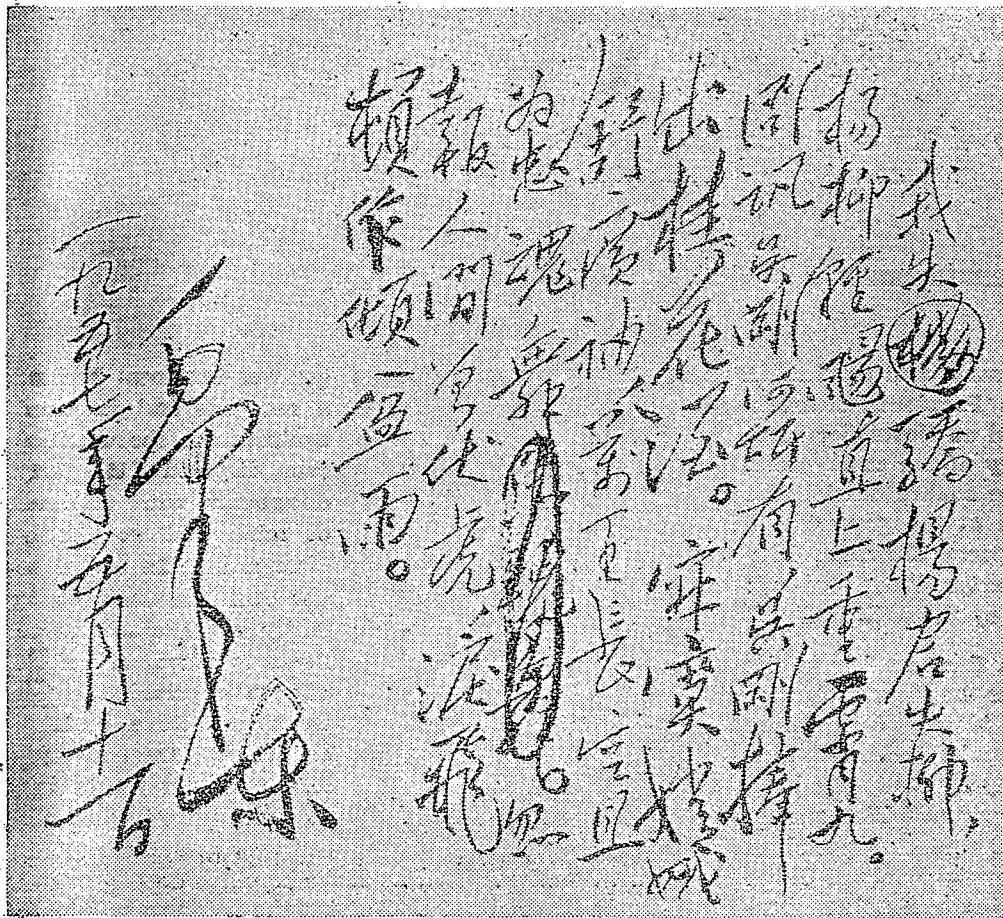 我失驕楊君失柳,
楊柳輕颺直上重霄九。
問訊吳剛何所有吳剛捧
出桂花酒。寂寞嫦娥
舒廣袖萬里長空且
为忠魂舞。忽
報人間曾伏虎淚飛
頓作傾盆雨。
毛澤東
一九五七年五月十一日